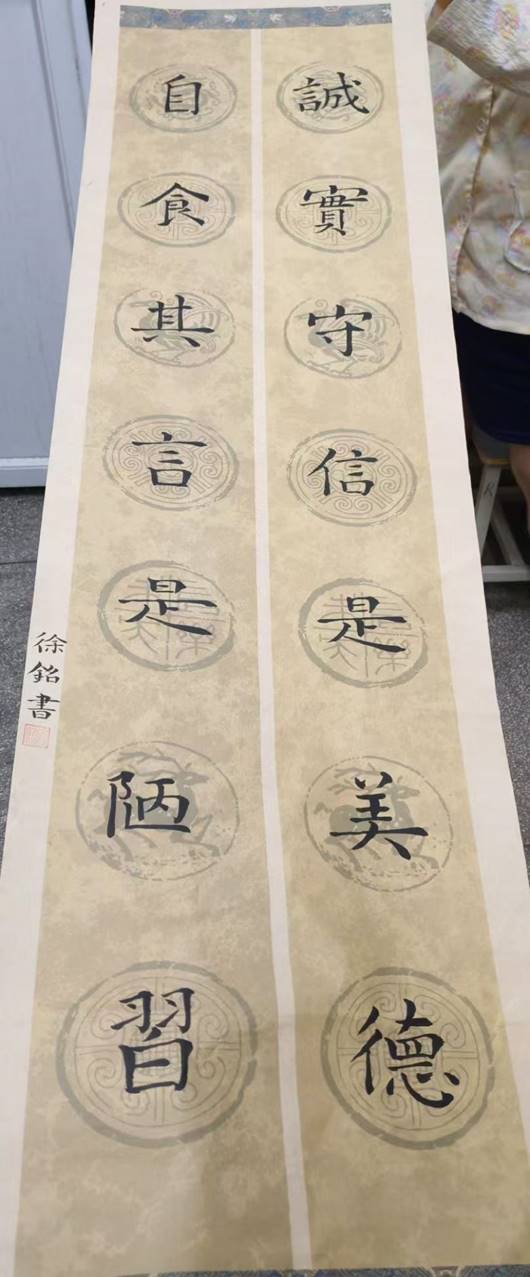 誠實守信是美德
自食其言是陋習
徐銘書